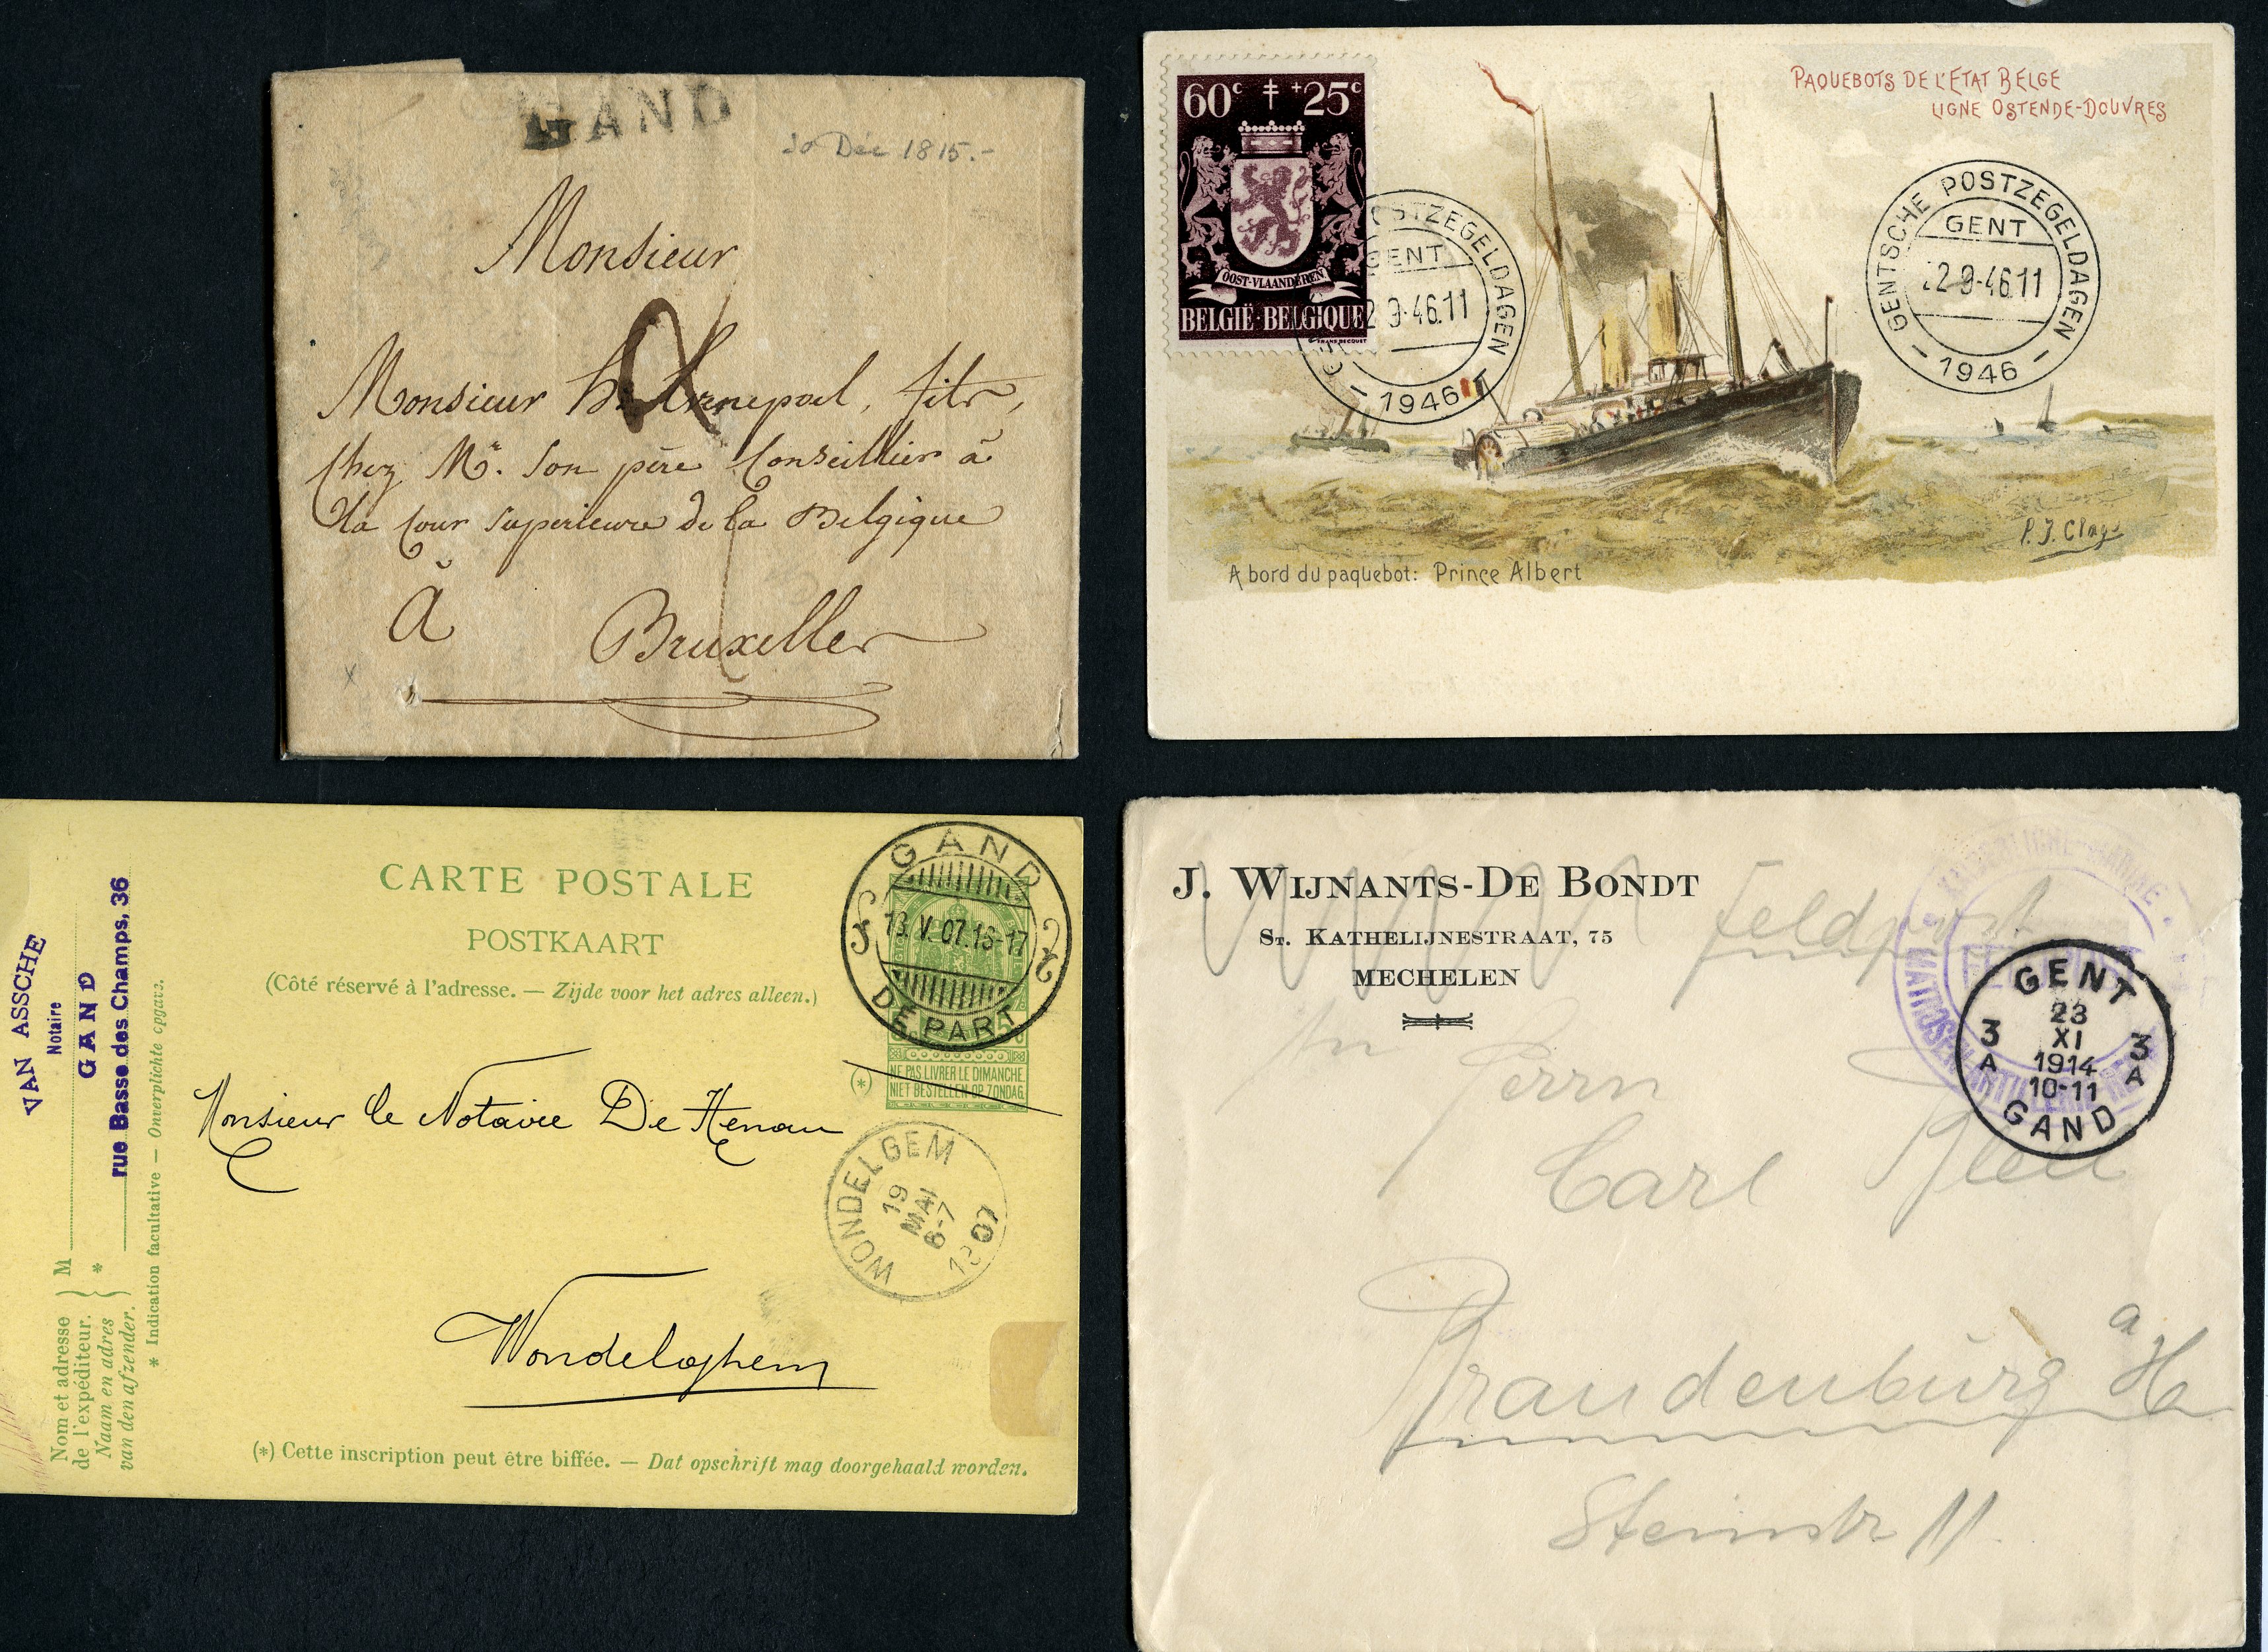 GAND
20 Déc 1815.-
Monsieur
2
Monsieur fils,
chez Mr. son père Conseillier à
la Cour Superieure de la Belgique
à Bruxelles
60c +25c
OOST-VLAANDEREN
BELGIË-BELGIQUE
POSTZEGELDAGEN
GENT
2 9-46.11
1946
PAQUEBOTS DE L'ETAT BELGE
LIGNE OSTENDE-DOUVRES
GENTSCHE POSTZEGELDAGEN
GENT
22-9-46.11
- 1946 -
P. J. Clays
A bord du paquebot: Prince Albert
VAN ASSCHE
Notaire
GAND
rue Basse des Champs, 36
Nom et adresse
de l'expéditeur.
Naam en adres
van den afzender.
M
*
* Indication facultative — Onverplichte opgave.
CARTE POSTALE
POSTKAART
(Côté réservé à l'adresse. — Zijde voor het adres alleen.)
GAND
13. V. 07.16-17
DÉPART
5
(*)
NE PAS LIVRER LE DIMANCHE.
NIET BESTELLEN OP ZONDAG.
Monsieur le Notaire De Henau
WONDELGEM
19
MAI
6-7
1907
Wondelghem
(*) Cette inscription peut être biffée. — Dat opschrift mag doorgehaald worden.
J. WIJNANTS-DE BONDT
ST. KATHELIJNESTRAAT, 75
MECHELEN
Feldpost
KAISERLICHE MARINE
MATROSEN ARTILLERIE
GENT
23
XI
1914
10-11
3 A 3 A
GAND
An Herrn
Carl
Brandenburg a/H
Steinstr 11